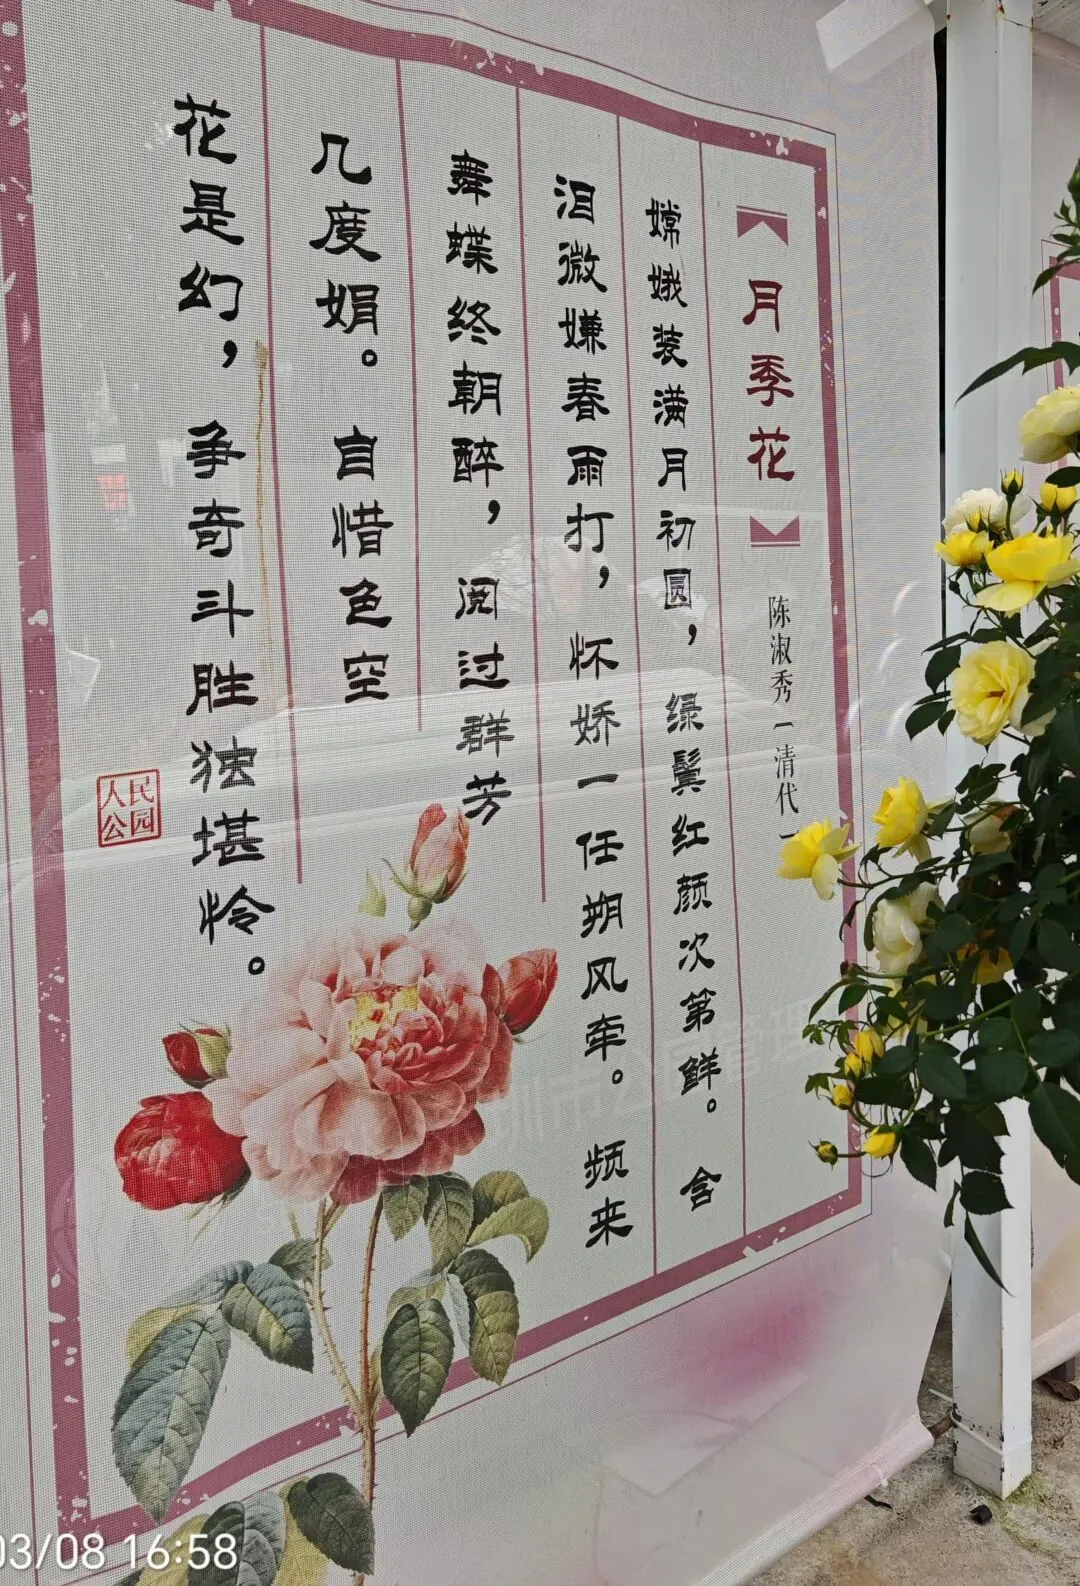 月季花
陈淑秀(清代)
嫦娥装满月初圆，绿鬓红颜次第鲜。含
泪微嫌春雨打，怀娇一任朔风牵。频来
舞蝶终朝醉，阅过群芳
几度娟。自惜色空
花是幻，争奇斗胜独堪怜。
人民公园
03/08 16:58